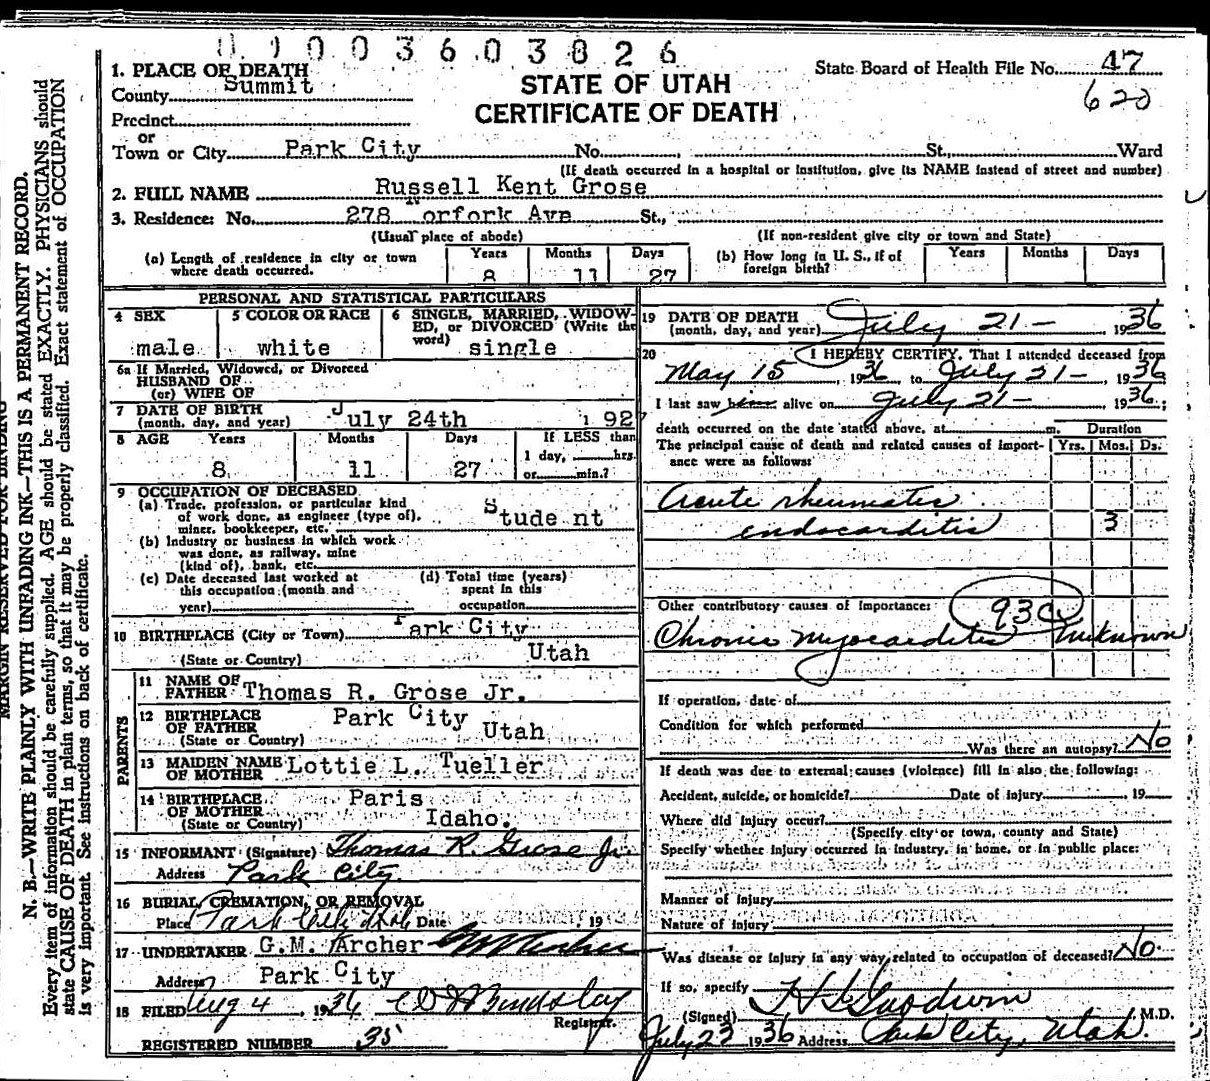 0 1 0 0 3 6 0 3 8 2 6
1. PLACE OF DEATH
County Summit
STATE OF UTAH
CERTIFICATE OF DEATH
State Board of Health File No. 47
620
Precinct
or
Town or City Park City No. St., Ward
(If death occurred in a hospital or institution, give its NAME instead of street and number)
2. FULL NAME Russell Kent Grose
3. Residence: No. 278 orfork Ave St.,
(Usual place of abode) (If non-resident give city or town and State)
(a) Length of residence in city or town where death occurred. Years 8 Months 11 Days 27
(b) How long in U. S., if of foreign birth? Years Months Days
PERSONAL AND STATISTICAL PARTICULARS
4 SEX male
5 COLOR OR RACE white
6 SINGLE, MARRIED, WIDOWED, or DIVORCED (Write the word) single
6a If Married, Widowed, or Divorced
HUSBAND OF
(or) WIFE OF
7 DATE OF BIRTH
(month, day, and year) July 24th 1927
8 AGE Years 8 Months 11 Days 27 If LESS than 1 day, hrs. or min.?
9 OCCUPATION OF DECEASED
(a) Trade, profession, or particular kind of work done, as engineer (type of), miner, bookkeeper, etc. Student
(b) Industry or business in which work was done, as railway, mine (kind of), bank, etc.
(c) Date deceased last worked at this occupation (month and year)
(d) Total time (years) spent in this occupation
10 BIRTHPLACE (City or Town) Park City
(State or Country) Utah
PARENTS
11 NAME OF FATHER Thomas R. Grose Jr.
12 BIRTHPLACE OF FATHER Park City
(State or Country) Utah
13 MAIDEN NAME OF MOTHER Lottie L. Tueller
14 BIRTHPLACE OF MOTHER Paris
(State or Country) Idaho.
15 INFORMANT (Signature) Thomas R. Grose Jr.
Address Park City
16 BURIAL, CREMATION, OR REMOVAL
Place Park City Utah Date 19
17 UNDERTAKER G.M. Archer
Address Park City
18 FILED Aug 4, 1936
Registrar.
REGISTERED NUMBER 35
19 DATE OF DEATH
(month, day, and year) July 21- 1936
20 I HEREBY CERTIFY, That I attended deceased from
May 15, 1936 to July 21-, 1936
I last saw him alive on July 21- 1936;
death occurred on the date stated above, at m. Duration
The principal cause of death and related causes of importance were as follows: Yrs. Mos. Ds.
Acute rheumatic
endocarditis 3
Other contributory causes of importance: 93c
Chronic myocarditis Unknown
If operation, date of
Condition for which performed
Was there an autopsy? No
If death was due to external causes (violence) fill in also the following:
Accident, suicide, or homicide? Date of injury 19
Where did injury occur?
(Specify city or town, county and State)
Specify whether injury occurred in industry, in home, or in public place:
Manner of injury
Nature of injury
Was disease or injury in any way related to occupation of deceased? No.
If so, specify
(Signed) H L Goodwin M.D.
July 23 1936 Address Park City, Utah.
MARGIN RESERVED FOR BINDING
N. B.—WRITE PLAINLY WITH UNFADING INK—THIS IS A PERMANENT RECORD.
Every item of information should be carefully supplied. AGE should be stated EXACTLY. PHYSICIANS should
state CAUSE OF DEATH in plain terms, so that it may be properly classified. Exact statement of OCCUPATION
is very important. See instructions on back of certificate.